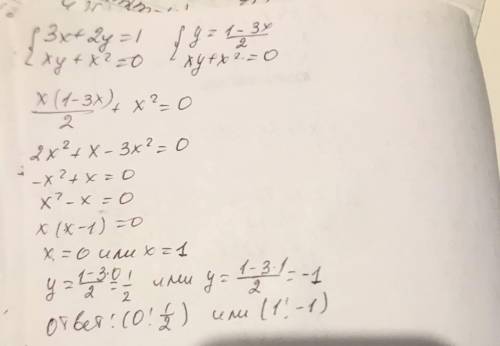 {3x+2y=1 {y=(1-3x)/2
{xy+x²=0 {xy+x²=0
x(1-3x)/2 + x²=0
2x²+x-3x²=0
-x²+x=0
x²-x=0
x(x-1)=0
x=0 или x=1
y=(1-3·0)/2=1/2 или y=(1-3·1)/2=-1
ответ: (0; 1/2) или (1; -1)